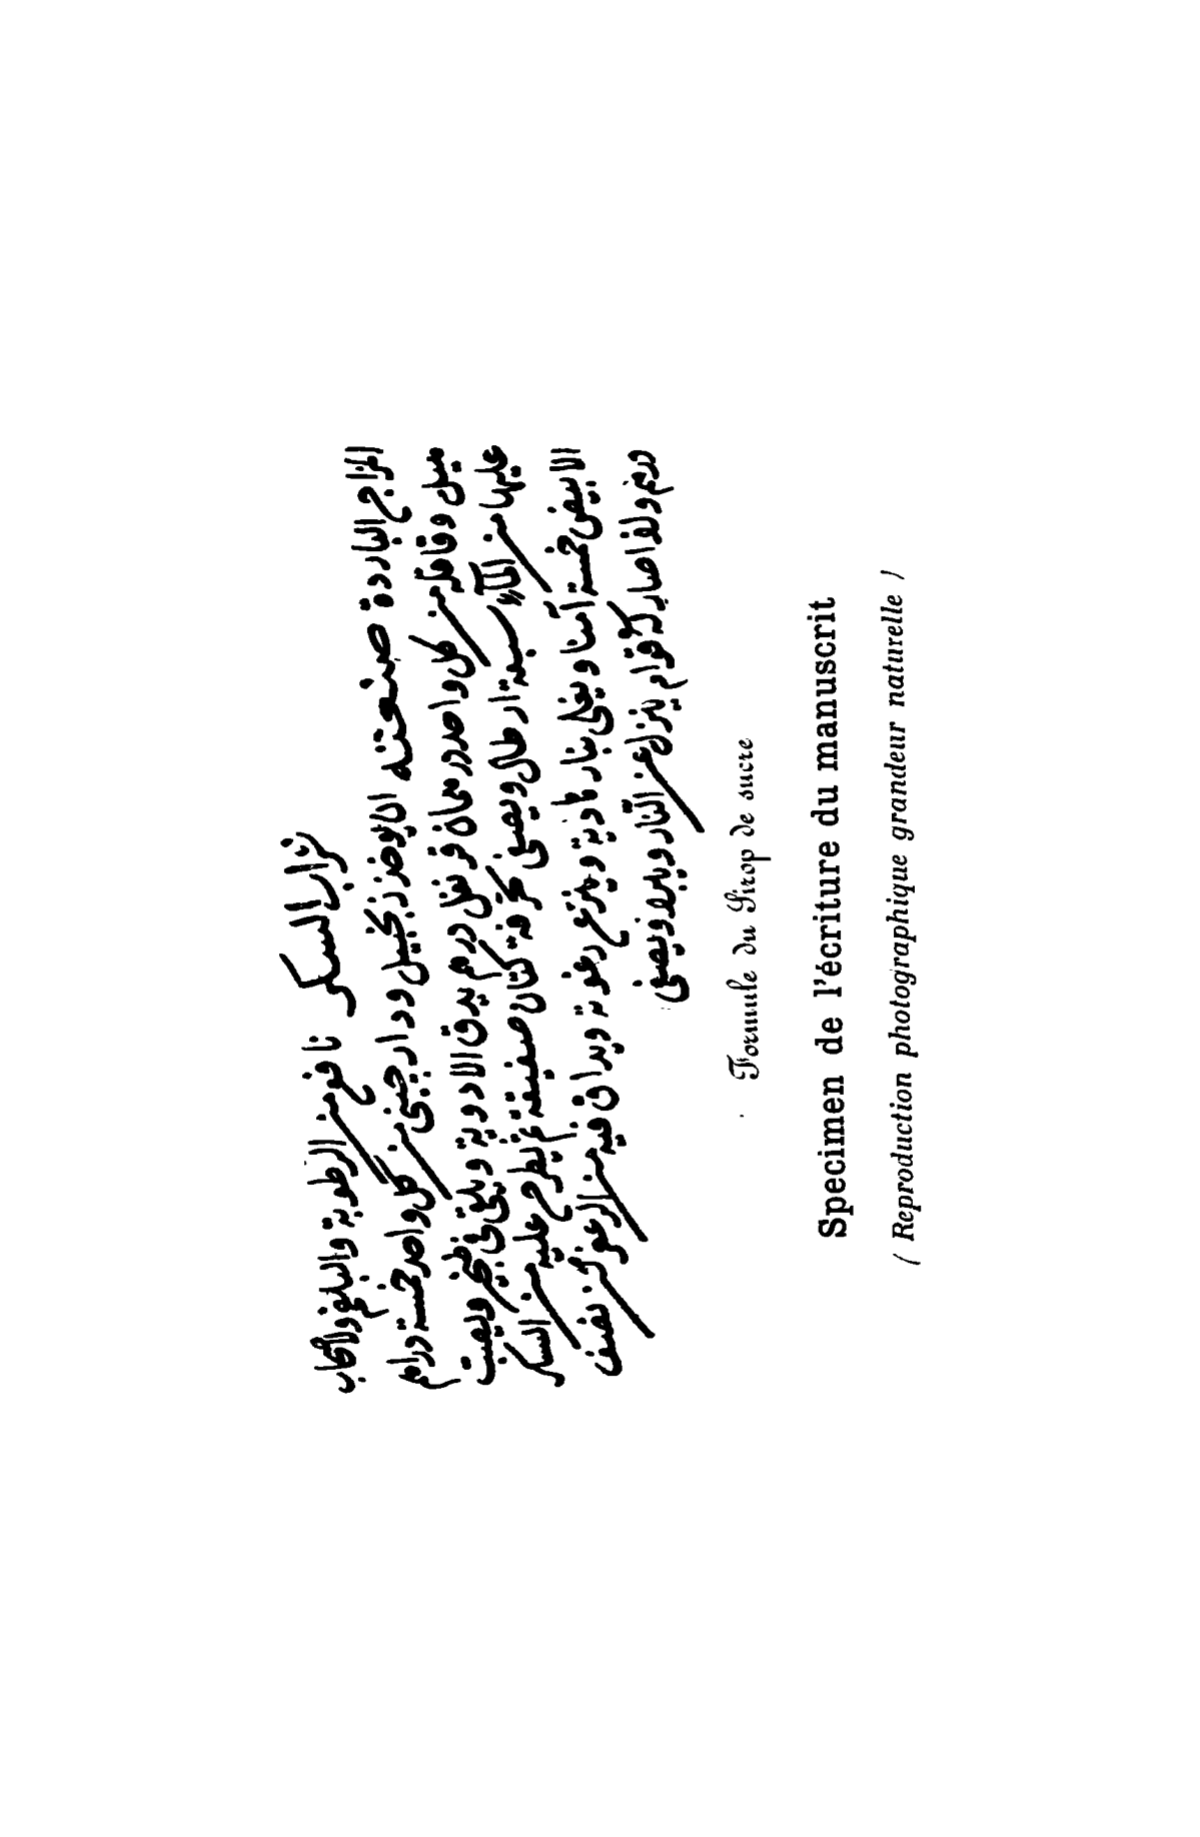 شراب السكر نافع من الرطوبة والبلغم ولاصحاب
المزاج الباردة صنعته ان يوخذ زنجبيل ودارجيني من كل واحد خمسة دراهم
هيل وقاقله من كل واحد درهمان قرنفل درهم يدق الادوية ويلقى في طنجير ويصب
عليها من المآء سبعة ارطال ويصفى بخرقة كتان صفيقة ثم يطرح عليه من السكر
الابيض خمسة آمنا ويغلى بنار هادية وينزع رغوته ويداف فيه من الزعفران نصف
درهم واذا صار له قوام ينزل عن النار ويبرد ويصفى
Formule du Sirop de sucre
Specimen de l'écriture du manuscrit
( Reproduction photographique grandeur naturelle )